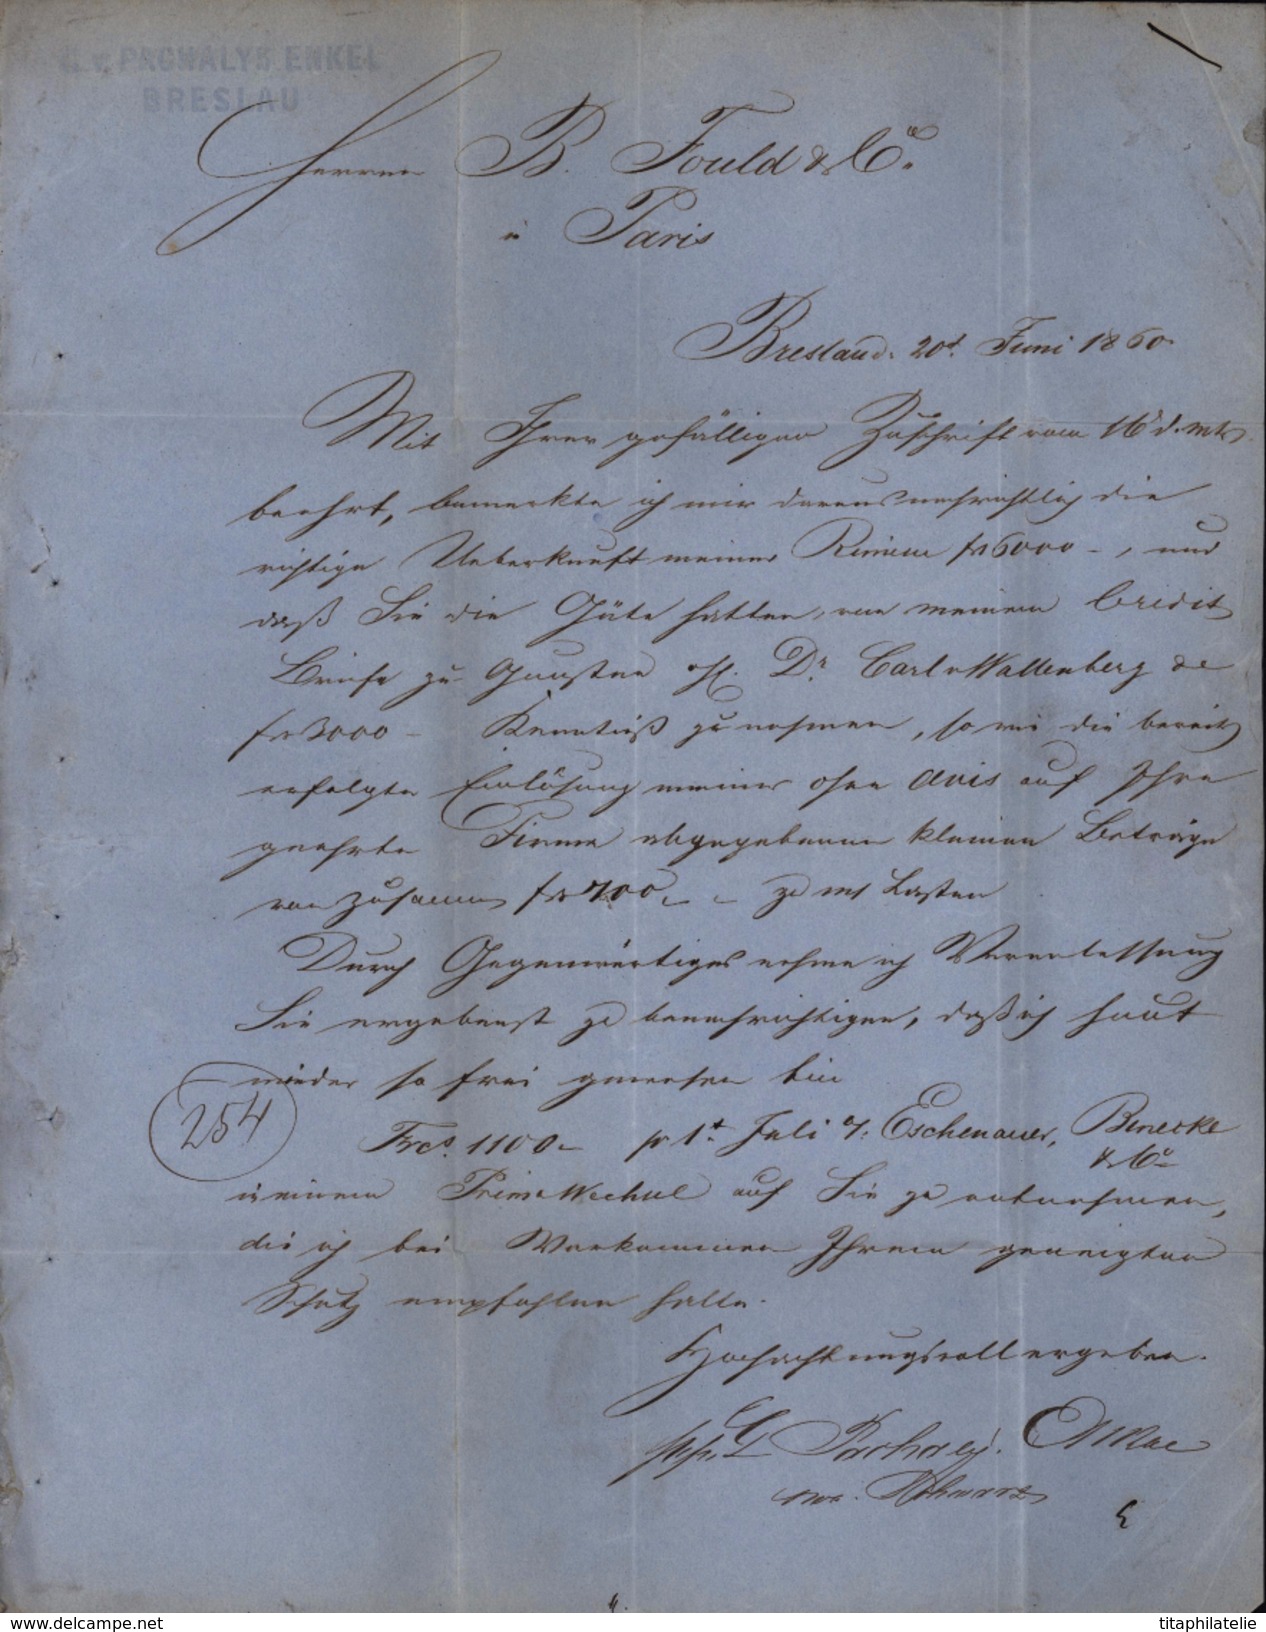 G. v. PACHALYS ENKEL
BRESLAU
Herren B. Fould & Co.
in Paris
Breslau d. 20t. Juni 1860.
Mit Ihrer gefälligen Zuschrift vom 16 d. Mts
beehrt, bemerkte ich mir daraus nachrichtlich die
richtige Ueberkunft meiner Rimesse frs 6000 –, und
daß Sie die Güte hatten, von meinem Credit
Briefe zu Gunsten Dr. Carl v Wallenberg de
frs 3000 – Kenntniß zu nehmen, so wie die bereits
erfolgte Einlösung meiner ohne Avis auf Ihre
geehrte Firma abgegebenen kleinen Beträge
von zusammen frs 700 – – zu m/ Lasten
Durch Gegenwärtiges nehme ich Veranlassung
Sie ergebenst zu benachrichtigen, daß ich heut
wieder so frei gewesen bin
254
Frcs. 1100 – pr 1t. Juli o/. Eschenauer, Benecke
& Co
in einem Prima Wechsel auf Sie zu entnehmen,
die ich bei Vorkommen Ihrem geneigten
Schutz empfohlen halte.
Hochachtungsvoll ergeben.
ppa. G v Pachaly's Enkel
titaphilatelie
www.delcampe.net